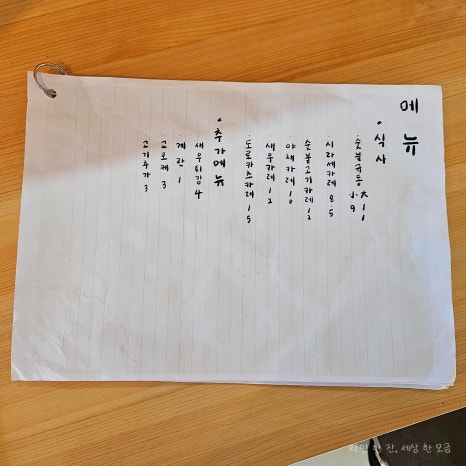 메뉴
• 식사
· 숯불규동 大 11 小 9
· 시라세카레 8.5
· 숯불고기카레 12
· 야채카레 10
· 새우카레 12
· 도로카츠카레 15
• 추가메뉴
· 새우튀김 4
· 계란 1
· 고로케 3
· 고기추가 3
와인 한 잔, 세상 한 모금